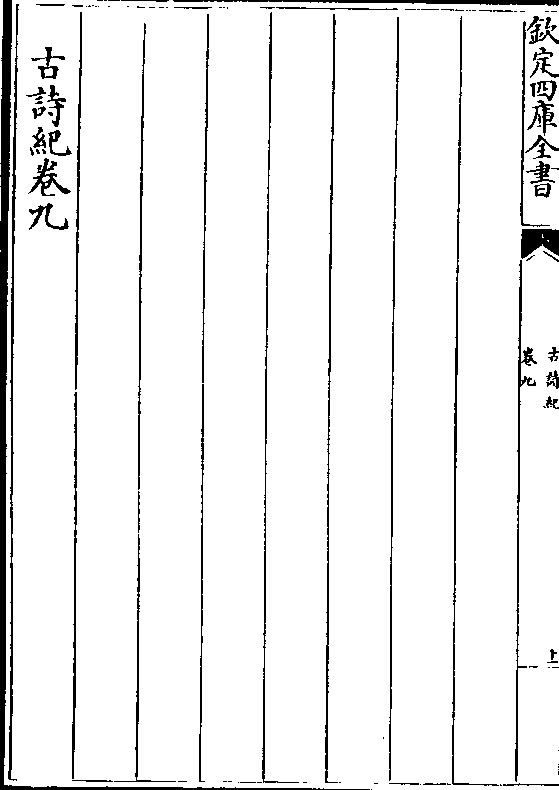 欽定四庫全書
古詩紀
卷九
古詩紀卷九